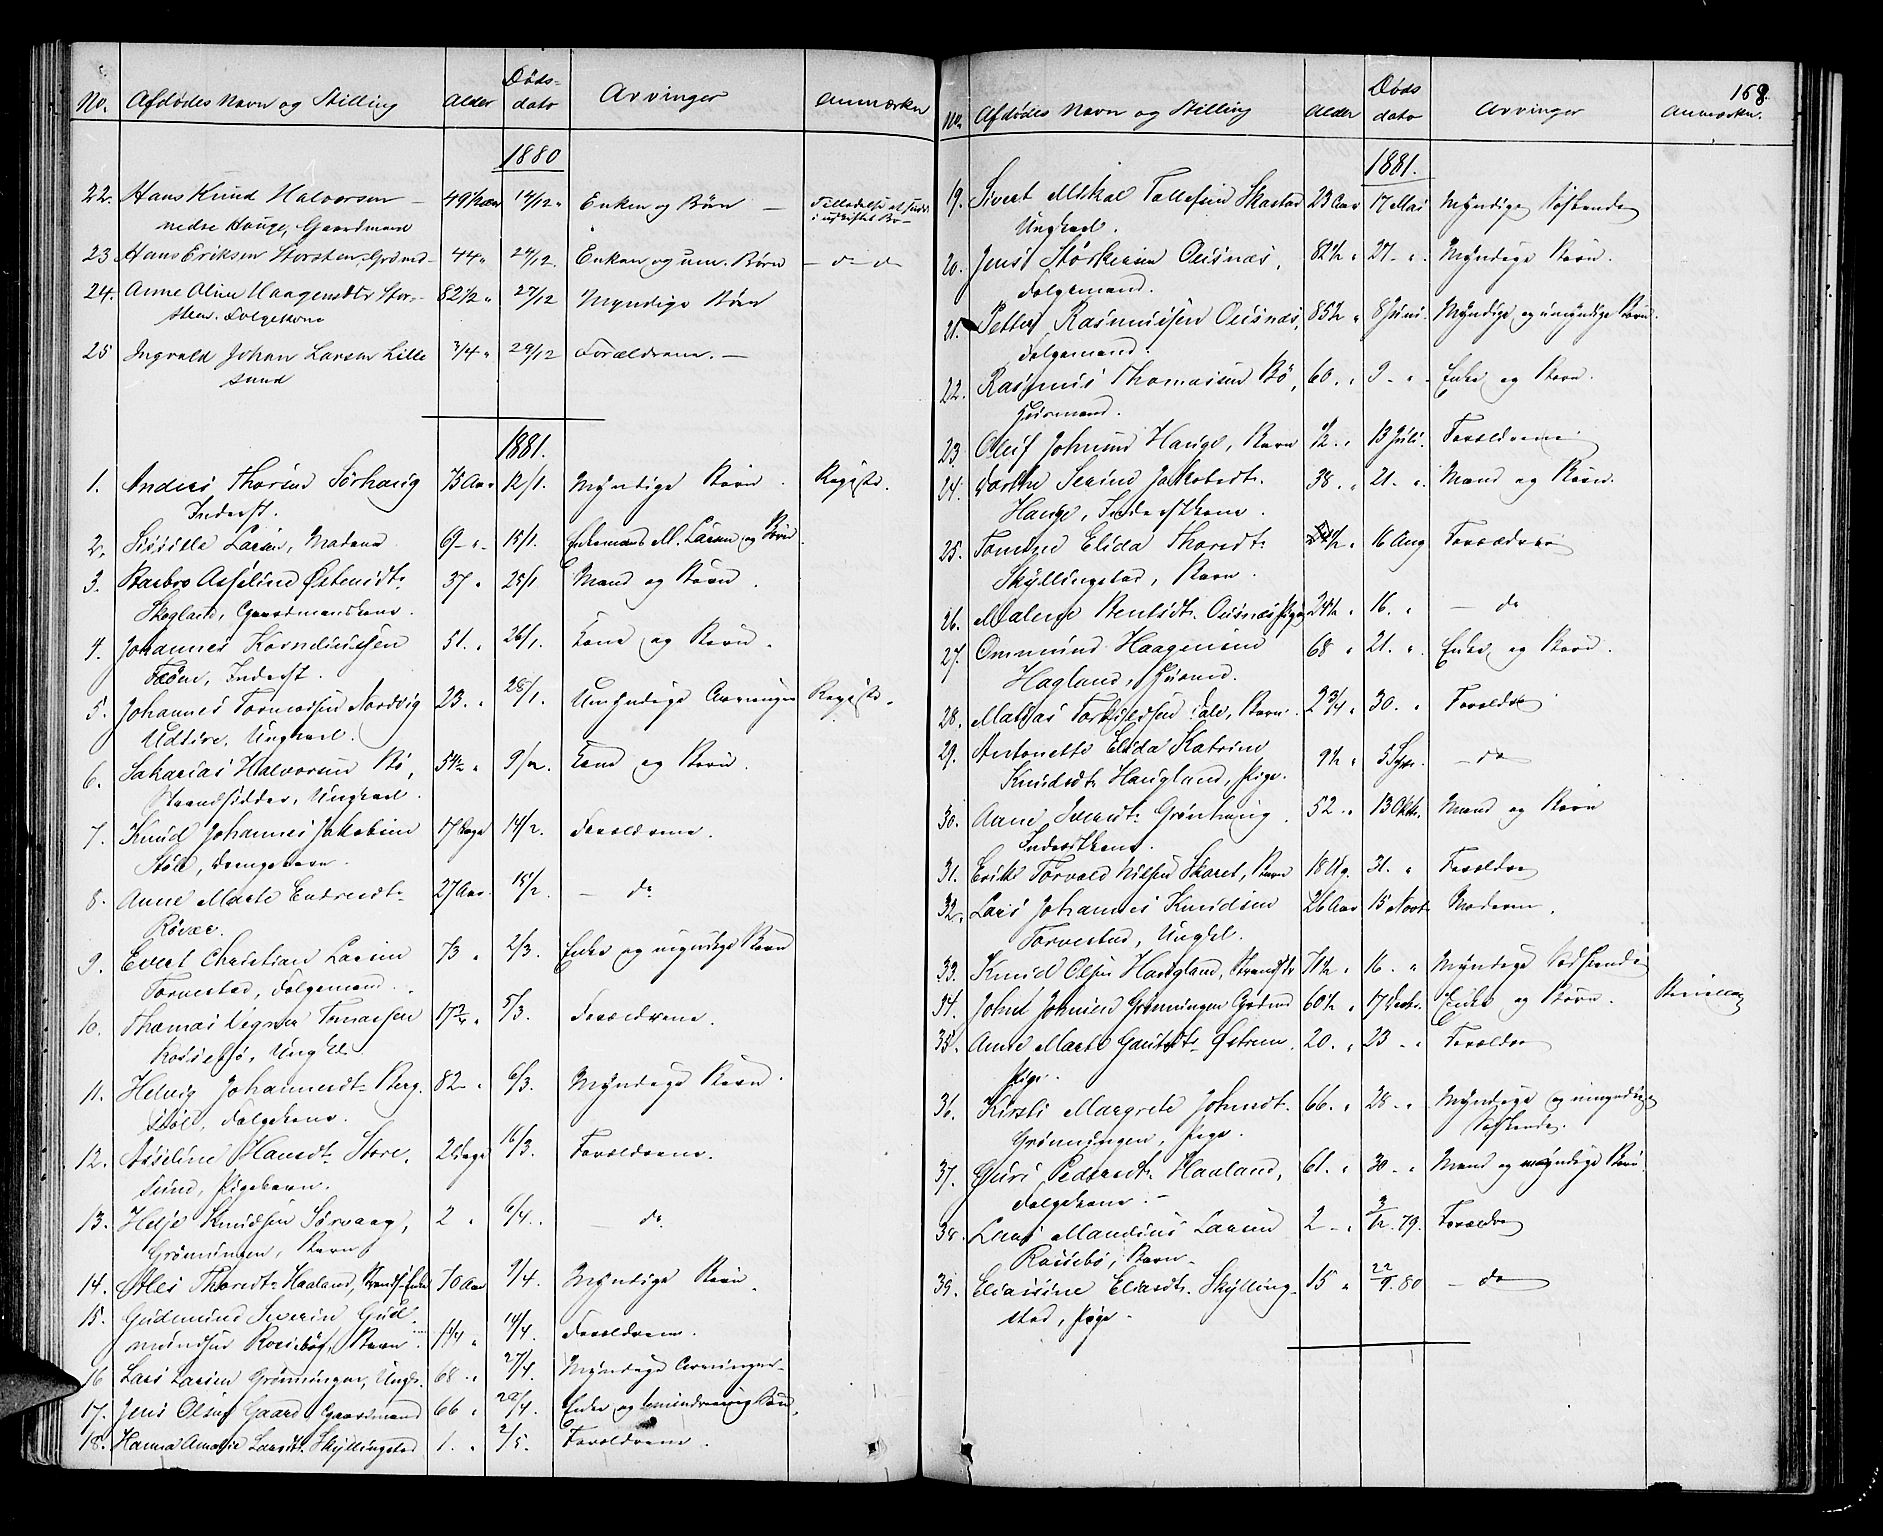 No. Afdødes Navn og Stilling Alder Døds-dato Arvinger Anmærkn
1880
22. Hans Knud Halvorsen 49½ Aar 14/12 Enken og Børn
nedre Hauge, Gaardmand
23 Hans Eriksen Storsten, Grdmd 44 " 24/12. Enken og um. Børn – do do
24. Anne Oline Haagensdtr Stor- 82½ " 27/12 Myndige Børn
steen. Folgekone
25 Ingvald Johan Larsen Lille 3/4 " 29/12 Forældrene. –
sund
1881.
1. Anders Thorsen Sørhaug 73 Aar 12/1. Myndige Børn. Registr.
Inderst.
2. Sissille Larsen, Madame 69 " 15/1. Enkemand M. Larsen og Børn
3. Barbro Asseline Østensdtr 37 " 25/1 Mand og Børn.
Skogland, Gaardmandskone.
4. Johannes Korneliussen 51. " 26/1. Kone og Børn.
Fæøen, Inderst.
5. Johannes Tormodsen Nordvig 23. " 28/1. Umyndige Arvinger Registr.
Udsire, Ungkarl.
6. Sakarias Halvorsen Bø, 54½ " 9/2. Kone og Børn.
Strandsidder, Ungkarl.
7. Knud Johannes Jakobsen 17 Dage 14/2. Forældrene.
Støle, Drengebarn.
8. Anne Marte Endresdtr 27 Aar. 15/2. – do
Røvær.
9. Evert Christian Larsen 73 " 2/3. Enke og myndige Børn
Torvestad, Folgemand.
10. Thomas Signer Tomassen 17 " 5/3. Forældrene.
Rossebø, Ungkl.
11. Helvig Johannesdtr Berg. 82 " 6/3. Myndige Børn.
Støl, Folgekone.
12. Asseline Hansdtr Store. 2 Dage 16/3. Forældrene.
sund, Pigebarn.
13. Helje Knudsen Sørvaag, 2 " 6/4. – do
Grønningen, Barn
14. Ales Thoresdtr Haaland, Strands. Enke 70 Aar 9/4. Myndige Børn.
15. Gudmund Severin Gud- 14/4.
mundsen Rossebø, Barn " Forældrene.
16 Lars Larsen Grønningen, Ungk. 68 " 27/4. Myndige Arvinger
17. Jens Olsen Gaard, Gaardmand 66 " 29/4. Enke og mindreaarig Børn.
18. Hanna Amalie Larsdtr Skyllingstad 1. " 2/5. Forældrene.
168.
No. Afdødes Navn og Stilling Alder Døds dato Arvinger Anmærkn.
1881.
19. Sivert Mikal Tollefsen Skarstad 23 Aar 17 Mai Myndige Søskende
Ungkarl.
20. Jens Størkersen Ousnæs, 82½ " 27. " Myndige Børn.
Folgemand.
21. Petter Rasmussen Ousnæs, 85½ " 8 Juni Myndige og umyndige Børn.
Folgemand.
22. Rasmus Thomassen Bø, 60. " 9 – " Enke og Børn.
Husmand.
23. Oluf Johnsen Hauge, Barn ½ " 13 Juli. Forældrene
24. Dorthe Serine Jakobsdtr. 38. " 21. " Mand og Børn.
Hauge, Inderstkone.
25. Tomine Elida Thoresdtr " 16 Aug Forældrene
Skyllingstad, Barn.
26. Malene Bentsdtr. Ousnæs Pige 24½ " 16. " – do
27. Ommund Haagensen 68 " 21. " Enke og Børn.
Hagland, Husmd.
28. Mathias Torkildsen Dale, Barn. 2 3/4 " 30. " Forældre
29. Antonette Elida Katrine 9½ " 5 Spbr. – do
Knudsdtr Haugland, Pige.
30. Anne Iversdtr Grønhaug 52. " 13 Oktbr. Mand og Børn
Inderstkone.
31. Erik Torvald Nilsen Skaret, Barn 18 Ug. 31. " Forældre
32. Lars Johannes Knudsen 26 Aar 15 Novbr Moderen.
Torvestad, Ungkl.
33. Knud Olsen Haugland, Strands. 71½ " 16. " Myndige Søskende
34. John Johnsen Grønningen Grdmd 60½ " 17 Decbr. Enke og Børn.
35. Anne Marte Gautesdtr Østrem 20. " 23 – " Forældre
Pige.
36. Kirsti Margrete Johnsdtr. 66. " 28 – " Myndige og umyndige
Grønningen, Pige. Søskende.
37. Guri Pedersdtr Haaland, 61. " 30 – " Mand og myndige Børn.
Folgekone. –
38. Lars Mandius Larsen 2 – " 3/12. 79. Forældre
Rossebø, Barn.
39. Eliasine Eliasdtr. Skylling- 15 " 22/9. 80 – do
stad, Pige.